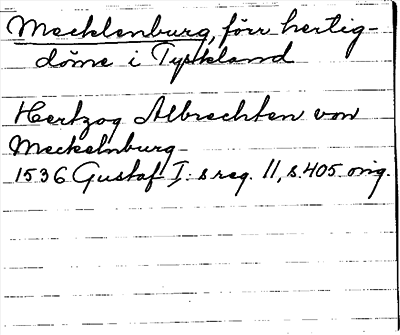 Mecklenburg, förr hertig-
döme i Tyskland
Hertzog Albrechten von
Meckelnburg
1536 Gustaf I:s reg. 11, s. 405 orig.